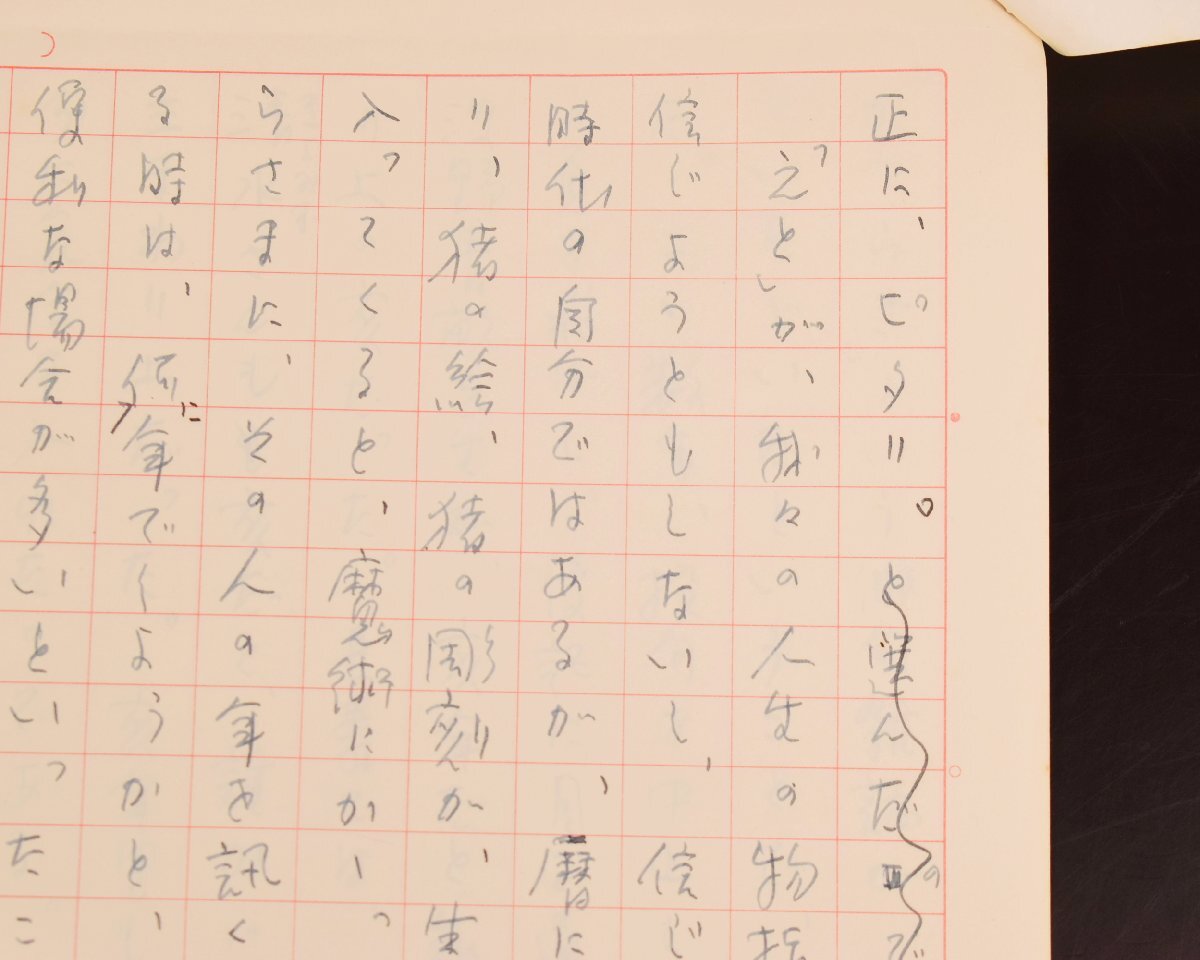 正に、ピタリ。と選んだので
「えと」が、我々の人生の物指
信じようともしないし、信じ
時代の自分ではあるが、暦に
り、猪の絵、猪の彫刻が、生
入ってくると、魔術にかゝっ
らさまに、その人の年を訊く
る時は、何に年でしようかと、
便利な場合が多いといったこ